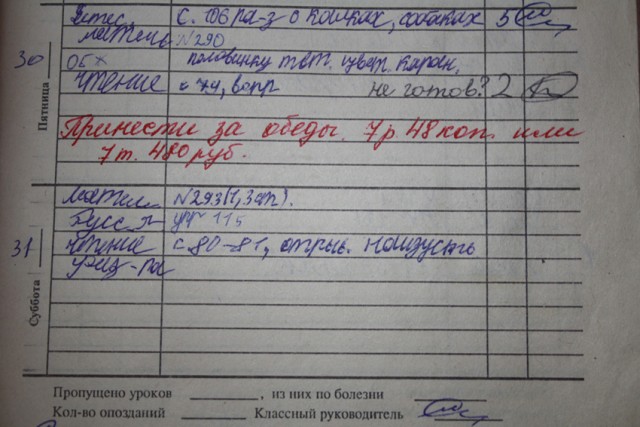 30
Пятница
с. 106 ра-з о кошках, собаках 5
матем №290
половинку тет. цвет. каран.
чтение с 74, вопр не готов? 2
Принести за обеды. 7 р. 48 коп. или
7 т. 480 руб.
31
Суббота
матем №293 (1, 3 ст).
Русс упр 115
чтение с. 80-81, отрыв. наизусть
физ-ра
Пропущено уроков ________, из них по болезни ________
Кол-во опозданий ________ Классный руководитель ________